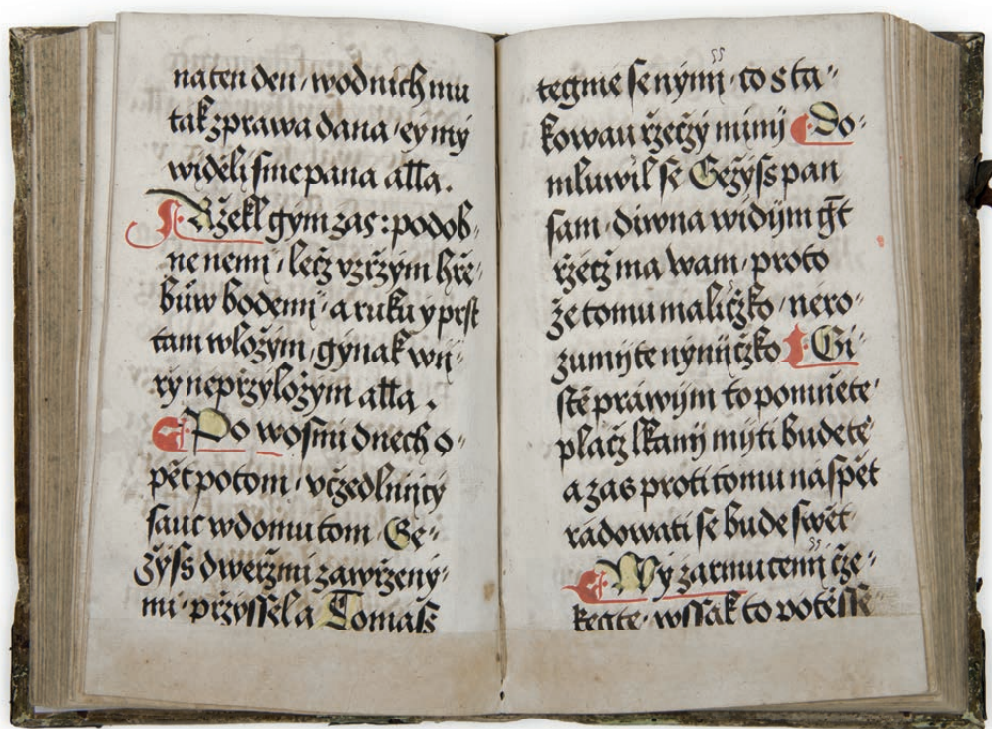 na ten den / wod nich mu
tak zprawa dana / ey my
widěli sme pana alla .
Ržekl gym zas : podob-
ne neni / lečz vzržým hře-
būw bodemi / a ruku y prst
tam wložým / gynak wij-
ry nepržyložým alla .
Po wosmi dnech o-
pět potom / včzedlnijcy
sauc w domu tom / Ge-
žýss dweržmi zawrženy-
mi / pržyssel a Tomass
ss
tegme se nýmij / co s ta-
kowau rzečzý mijnij Do-
mluwil se Gežýss pan
sam / diwna widým gt
rzečz ma wam / proto
že tomu maličzko / nero-
zumijte nýnijčzko Gi-
stě prawijm to pomnēte
plačz lkanij mijti budete
a zas proti tomu naspět
radowati se bude swět
ss
Wý zarmucenij čže-
kegte / wssak to potěsse